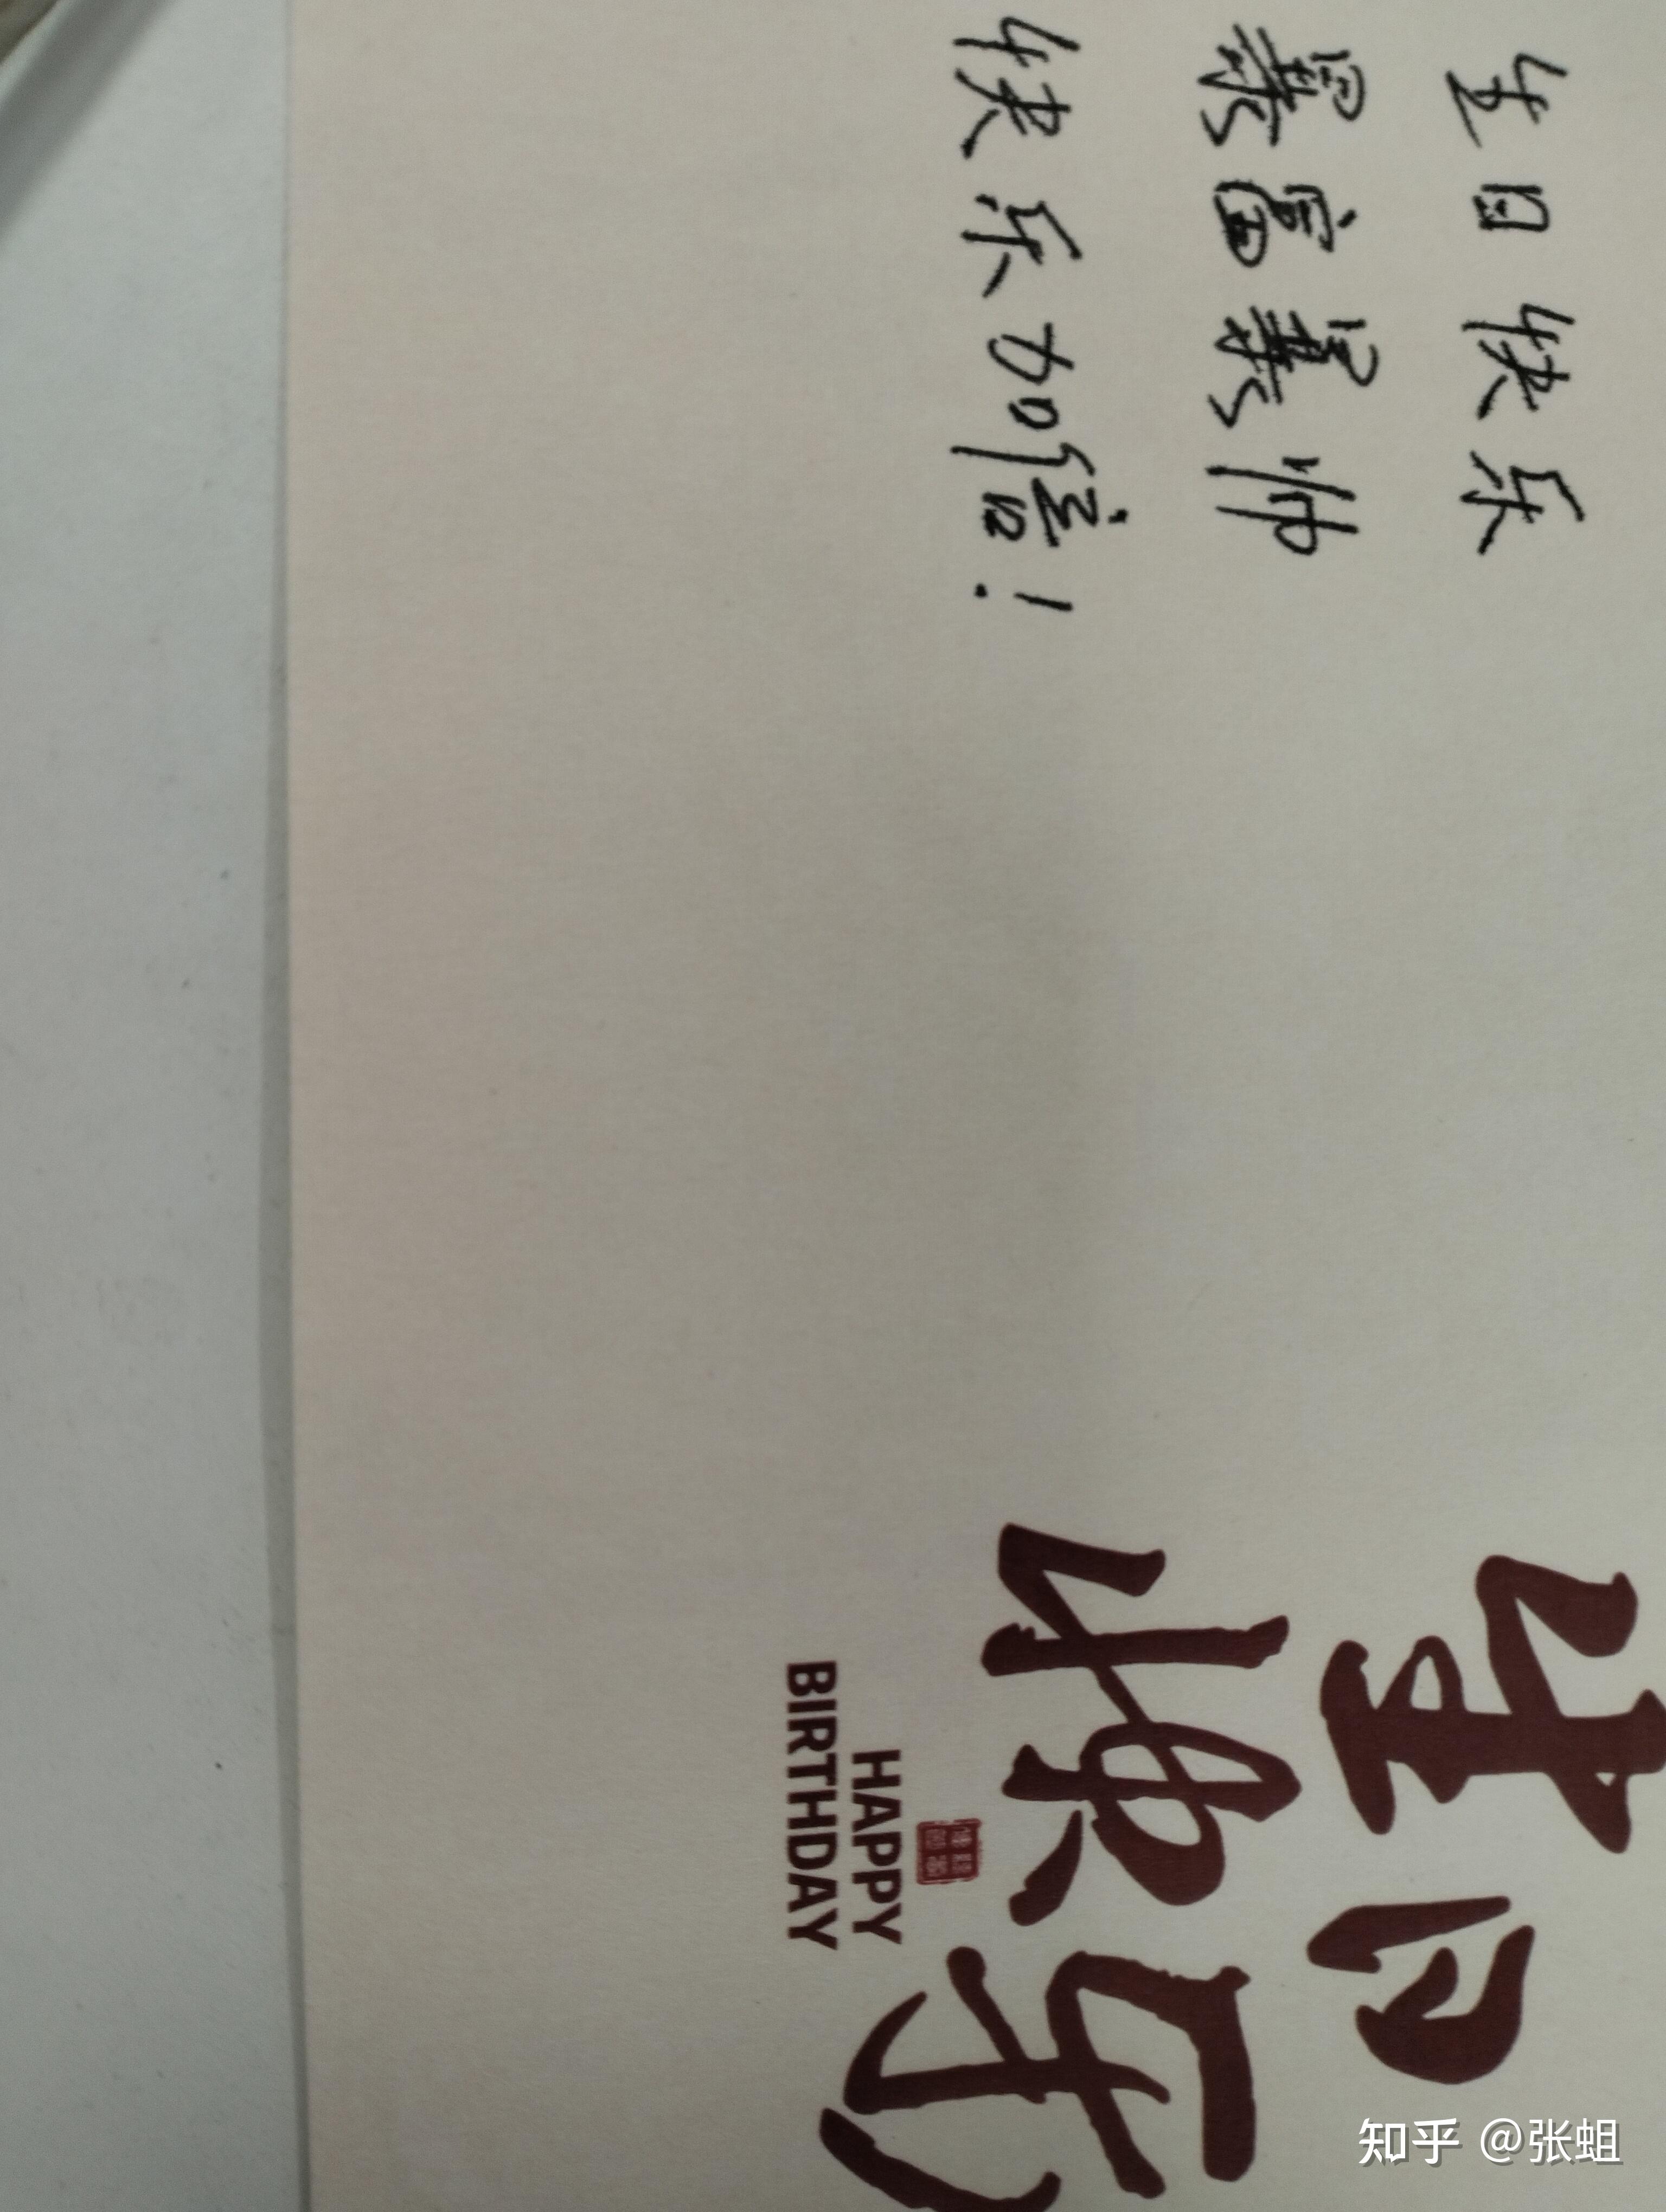 生日快乐
暴富暴帅
快乐加倍！
生日
快乐
HAPPY
BIRTHDAY
知乎 @张蛆